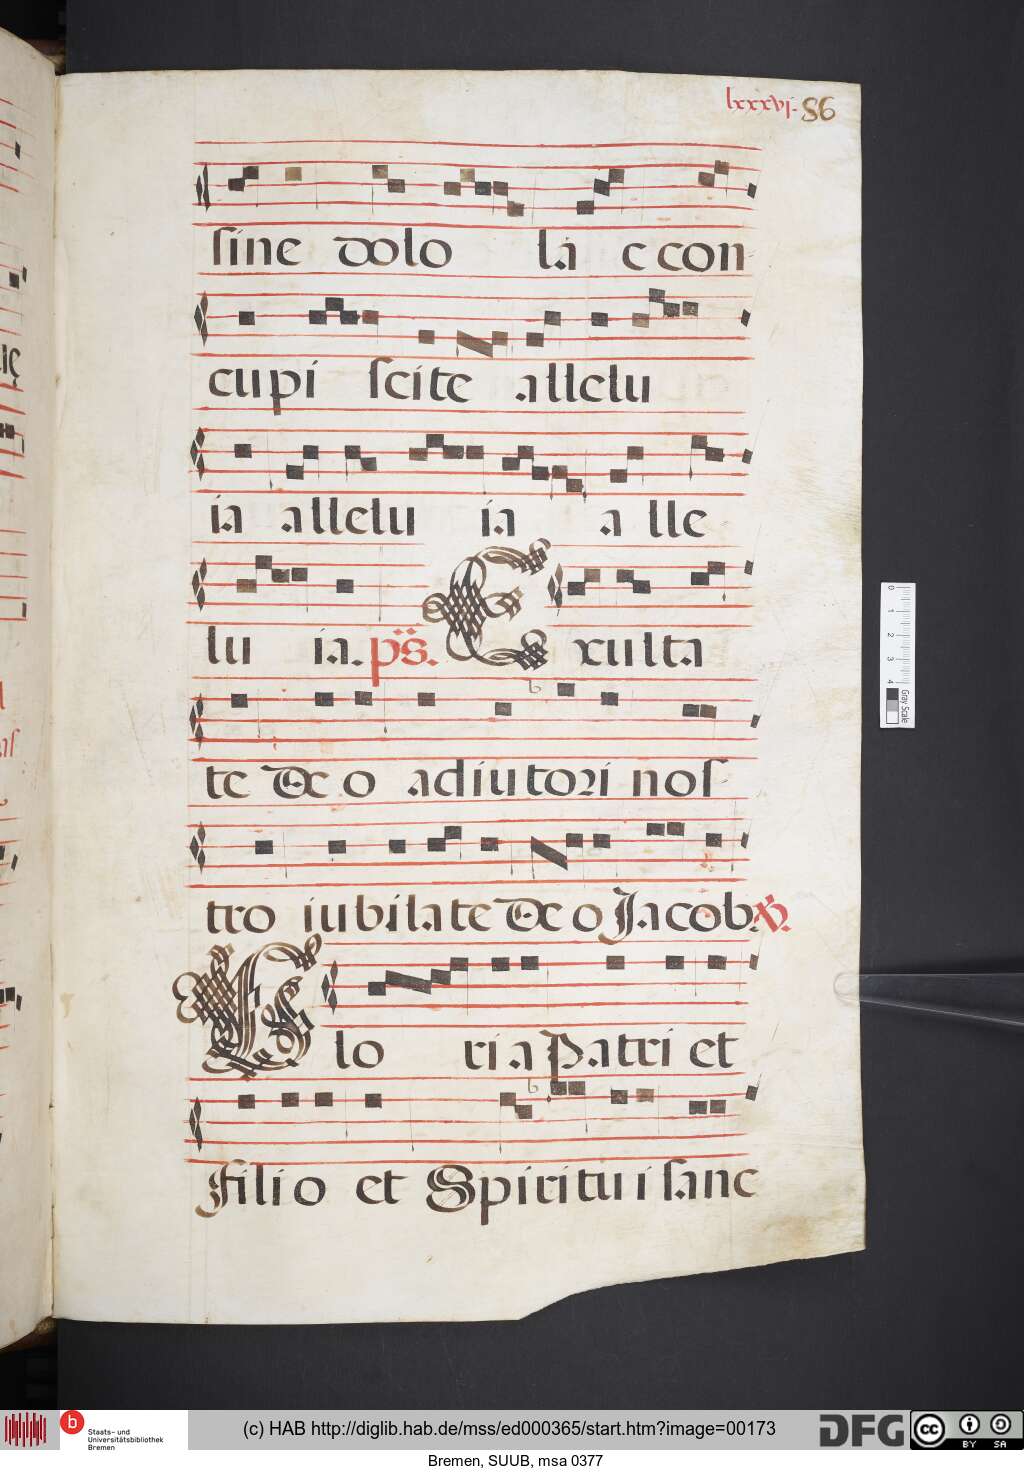 lxxxvj. 86
sine dolo la c con
cupi scite allelu
ia allelu ia a lle
lu ia. ps. E xulta
te Deo adiutori nos
tro iubilate Deo Jacob. V.
G lo ri a Patri et
filio et Spiritui sanc
0 1 2 3 4 Gray Scale
b Staats- und
Universitätsbibliothek
Bremen
(c) HAB http://diglib.hab.de/mss/ed000365/start.htm?image=00173
DFG
cc BY SA
Bremen, SUUB, msa 0377